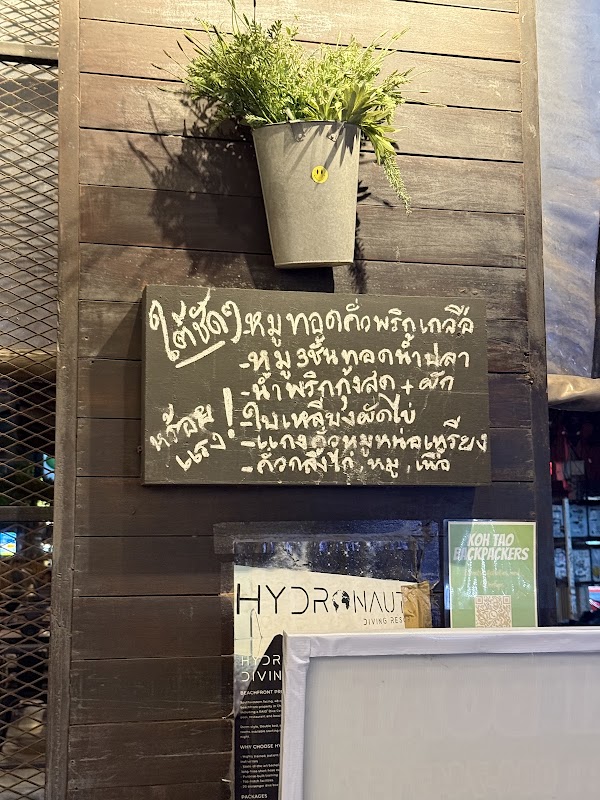 ใต้ชัดๆ
-หมูทอดคั่วพริกเกลือ
-หมู3ชั้นทอดน้ำปลา
-น้ำพริกกุ้งสด + ผัก
หร้อย
แรง!
-ใบเหลียงผัดไข่
-แกงคั่วหมูหน่อเหรียง
-คั่วกลิ้งไก่, หมู, เนื้อ
KOH TAO
BACKPACKERS
HYDRONAUT
DIVING RES
HYDR
DIVIN
BEACHFRONT PR
WHY CHOOSE HY
PACKAGES